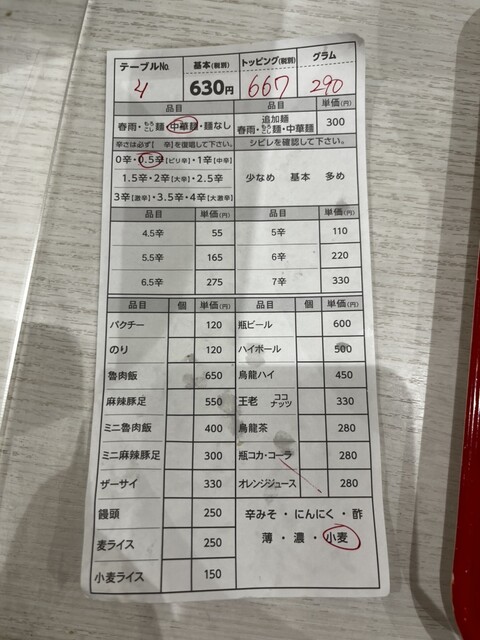 テーブルNo. 基本(税別) トッピング(税別) グラム
4 630円 667 290
品目 品目 単価(円)
春雨・もろこし麺・中華麺・麺なし 追加麺 春雨・もろこし麺・中華麺 300
辛さは必ず『 辛』を復唱して下さい。 シビレを確認して下さい。
0辛・0.5辛[ピリ辛]・1辛[中辛]
1.5辛・2辛[大辛]・2.5辛 少なめ 基本 多め
3辛[激辛]・3.5辛・4辛[大激辛]
品目 単価(円) 品目 単価(円)
4.5辛 55 5辛 110
5.5辛 165 6辛 220
6.5辛 275 7辛 330
品目 個 単価(円) 品目 個 単価(円)
パクチー 120 瓶ビール 600
のり 120 ハイボール 500
魯肉飯 650 烏龍ハイ 450
麻辣豚足 550 王老 ココナッツ 330
ミニ魯肉飯 400 烏龍茶 280
ミニ麻辣豚足 300 瓶コカ・コーラ 280
ザーサイ 330 オレンジジュース 280
饅頭 250 辛みそ・にんにく・酢
麦ライス 250 薄・濃・小麦
小麦ライス 150